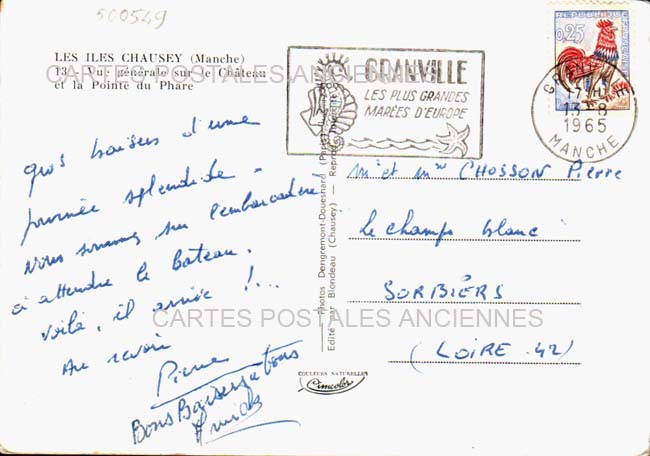 500549
LES ILES CHAUSEY (Manche)
13. Vue générale sur le Château
et la Pointe du Phare
CARTES POSTALES ANCIENNES
GRANVILLE
LES PLUS GRANDES
MARÉES D'EUROPE
POSTES
0,25
17H
13-8
1965
MANCHE
gros baisers d'une
journée splendide -
Nous sommes sur l'embarcadère
à attendre le bateau.
Voilà, il arrive !...
Au revoir
Pierre
Bons Baisers à tous
Photos Dengremont-Douesnard (Paris)
Edité par Blondeau (Chausey) — Reproduction
Mr et Mme CHOSSON Pierre
Le champs blanc
SORBIERS
(LOIRE. 42)
CARTES POSTALES ANCIENNES
COULEURS NATURELLES
Cimcolor